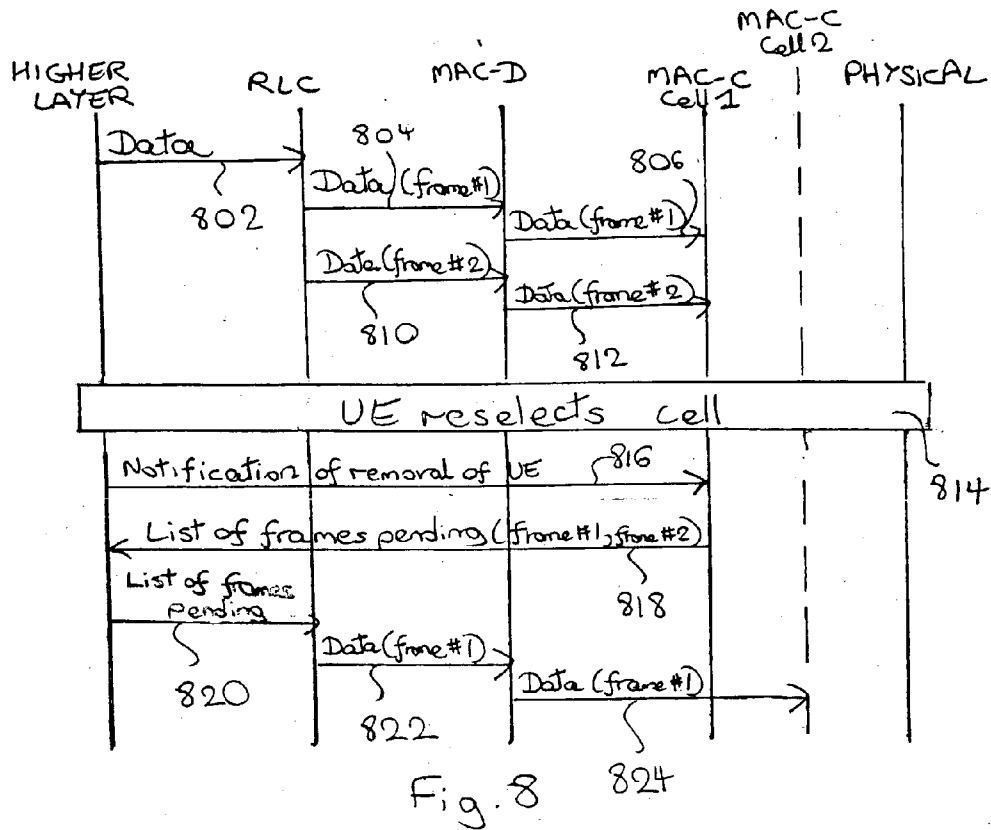 HIGHER
LAYER
RLC
MAC-D
MAC-C
Cell 1
MAC-C
Cell 2
PHYSICAL
Data
802
804
Data (frame #1)
806
Data (frame #1)
Data (frame #2)
810
Data (frame #2)
812
UE reselects cell
814
Notification of removal of UE
816
List of frames pending (frame #1, frame #2)
818
List of frames
pending
820
Data (frame #1)
822
Data (frame #1)
824
Fig. 8